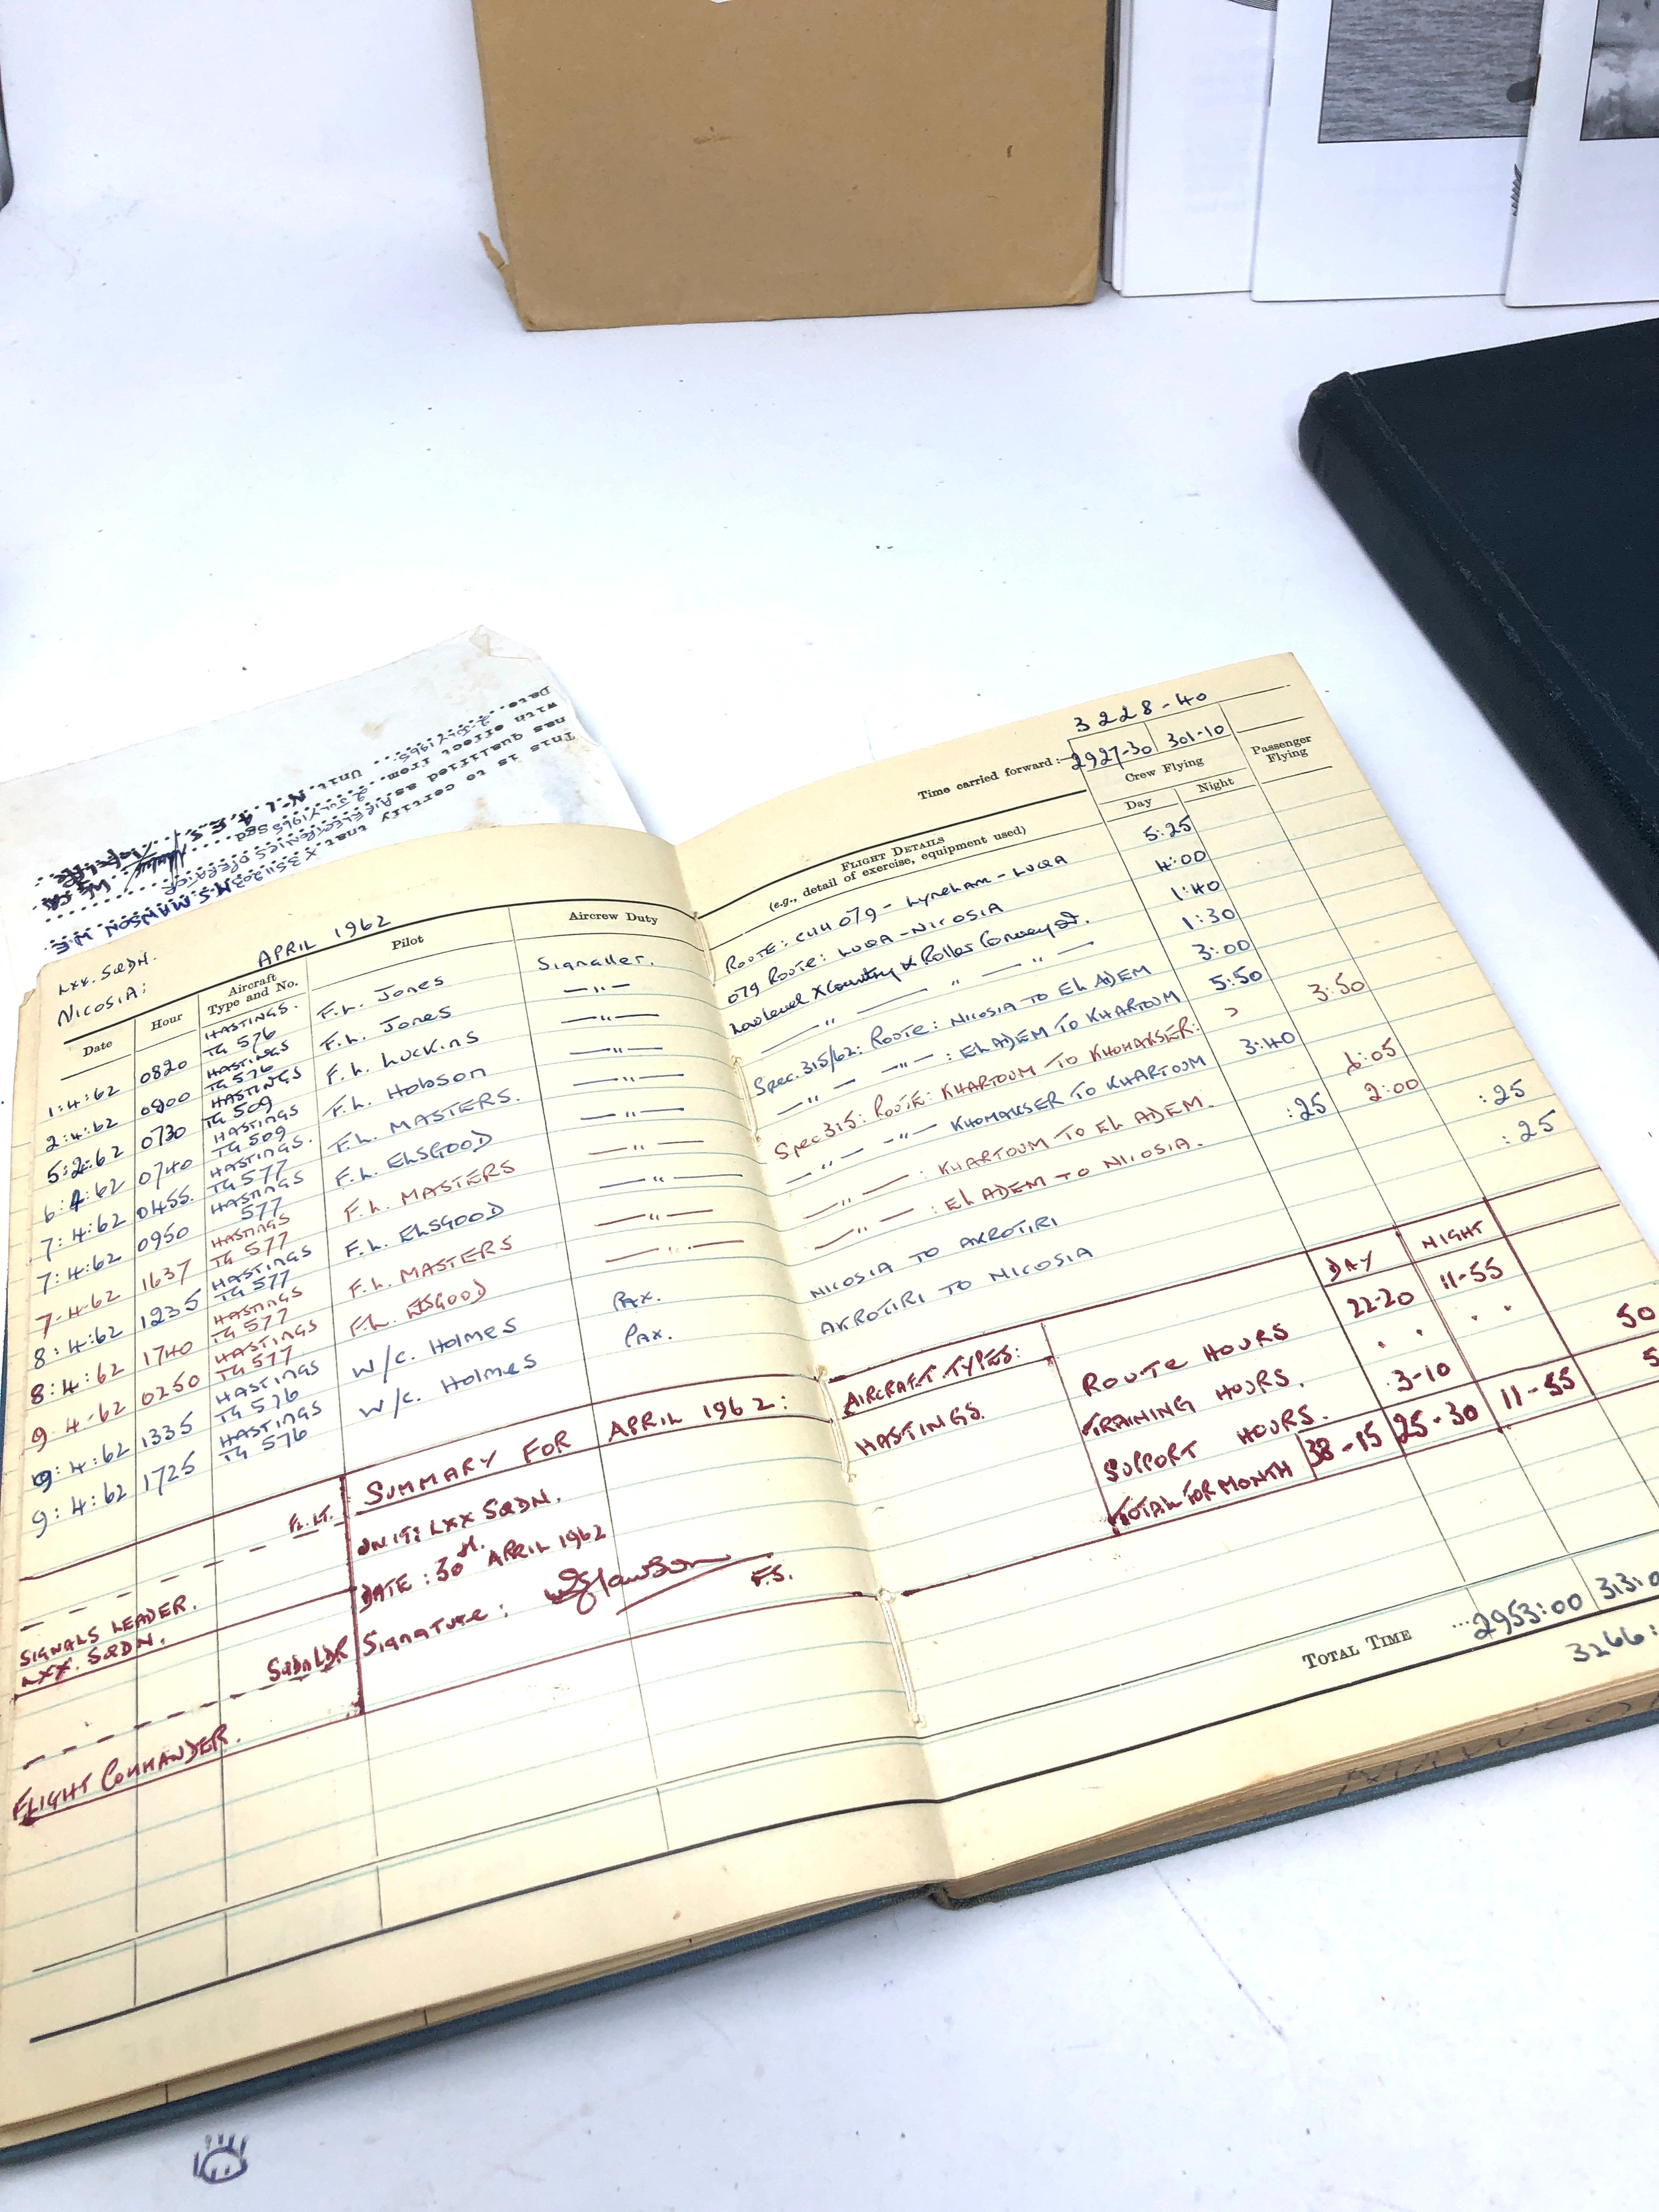 This is to certify that X3511203 M.S. MANSON M.E.
has qualified as AIR ELECTRONICS OPERATOR
with effect from 2 JULY 1965 Sgd
Date 2 JULY 1965 Unit No.1 A.E.S.
LXX. SQDN.
APRIL 1962
NICOSIA:
Date Hour Aircraft Type and No. Pilot Aircrew Duty
1:4:62 0820 HASTINGS. TG 576 F.L. Jones Signaller.
2:4:62 0900 HASTINGS TG 576 F.L. Jones —"—
5:4:62 0730 HASTINGS TG 509 F.L. LUCKINS —"—
6:4:62 0740 HASTINGS TG 509 F.L. Hobson —"—
7:4:62 0455. HASTINGS. TG 577 F.L. MASTERS. —"—
7:4:62 0950 HASTINGS 577 F.L. ELSGOOD —"—
7-4-62 1637 HASTINGS TG 577 F.L. MASTERS —"—
8:4:62 1235 HASTINGS TG 577 F.L. ELSGOOD —"—
8:4:62 1740 HASTINGS TG 577 F.L. MASTERS —"—
9.4-62 0250 HASTINGS TG 577 F.L. ELSGOOD —"—
9:4:62 1335 HASTINGS TG 576 W/C. Holmes PAX.
9:4:62 1725 HASTINGS TG 576 W/C. Holmes PAX.
SUMMARY FOR APRIL 1962:
FL. LT. UNIT: LXX SQDN.
DATE: 30th. APRIL 1962
SIGNALS LEADER. Signature: F.S.
LXX. SQDN.
SQDN LDR
FLIGHT COMMANDER.
3228-40
Time carried forward:— 2927-30 301-10
FLIGHT DETAILS Crew Flying Passenger Flying
(e.g., detail of exercise, equipment used) Day Night
ROUTE: CHH 079 - LYNEHAM - LUQA 5:25
079 ROUTE: LUQA - NICOSIA 4:00
Low level X Country & Roller Conveyor. 1:40
—"— —"— —"— 1:30
Spec. 315/62: ROUTE: NICOSIA TO EL ADEM 3:00
—"— —"—: EL ADEM TO KHARTOUM 5:50
Spec 315: ROUTE: KHARTOUM TO KHOMAKSER: 3:50
—"— —"— KHOMAKSER TO KHARTOUM 3:40
—"— —: KHARTOUM TO EL ADEM. 6:05
—"— —: EL ADEM TO NICOSIA. :25 2:00
NICOSIA TO AKROTIRI :25
AKROTIRI TO NICOSIA :25
DAY NIGHT
AIRCRAFT TYPES: ROUTE HOURS 22-20 11-55
HASTINGS. TRAINING HOURS. . . . .
SUPPORT HOURS. 3-10 50
TOTAL FOR MONTH 38-15 25-30 11-55 5
TOTAL TIME ...2953:00 313:0
3266: